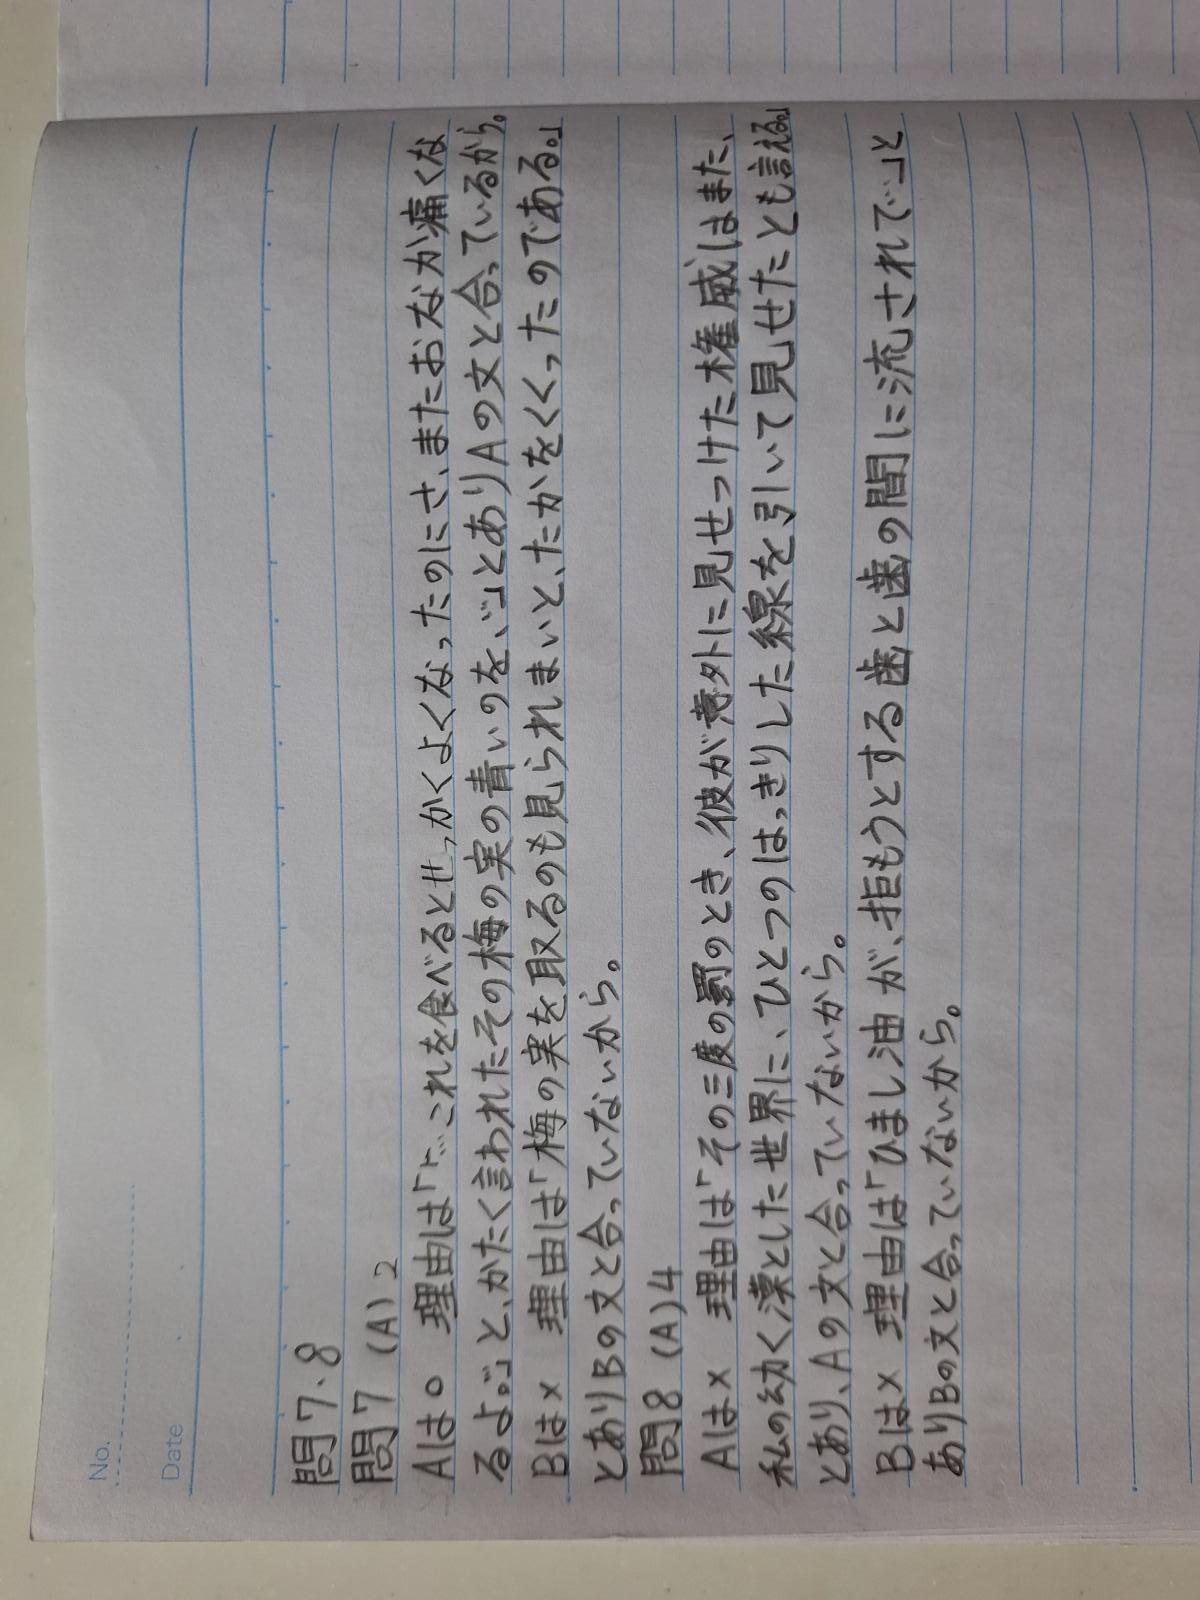 No.
Date
問7.8
問7 (A) 2
Aは○ 理由は「「これを食べるとせっかくよくなったのにさ、またおなか痛くな
るよ。」と、かたく言われたその梅の実の青いのを、」とありAの文と合っているから。
Bは× 理由は「梅の実を取るのも見られまいと、たかをくくったのである。」
とありBの文と合っていないから。
問8 (A)4
Aは× 理由は「その三度の罰のとき、彼が意外に見せつけた権威はまた、
私の幼く漠とした世界に、ひとつのはっきりした線を引いて見せたとも言える。」
とあり、Aの文と合っていないから。
Bは× 理由は「ひまし油が、拒もうとする歯と歯の間に流されで、」と
ありBの文と合っていないから。